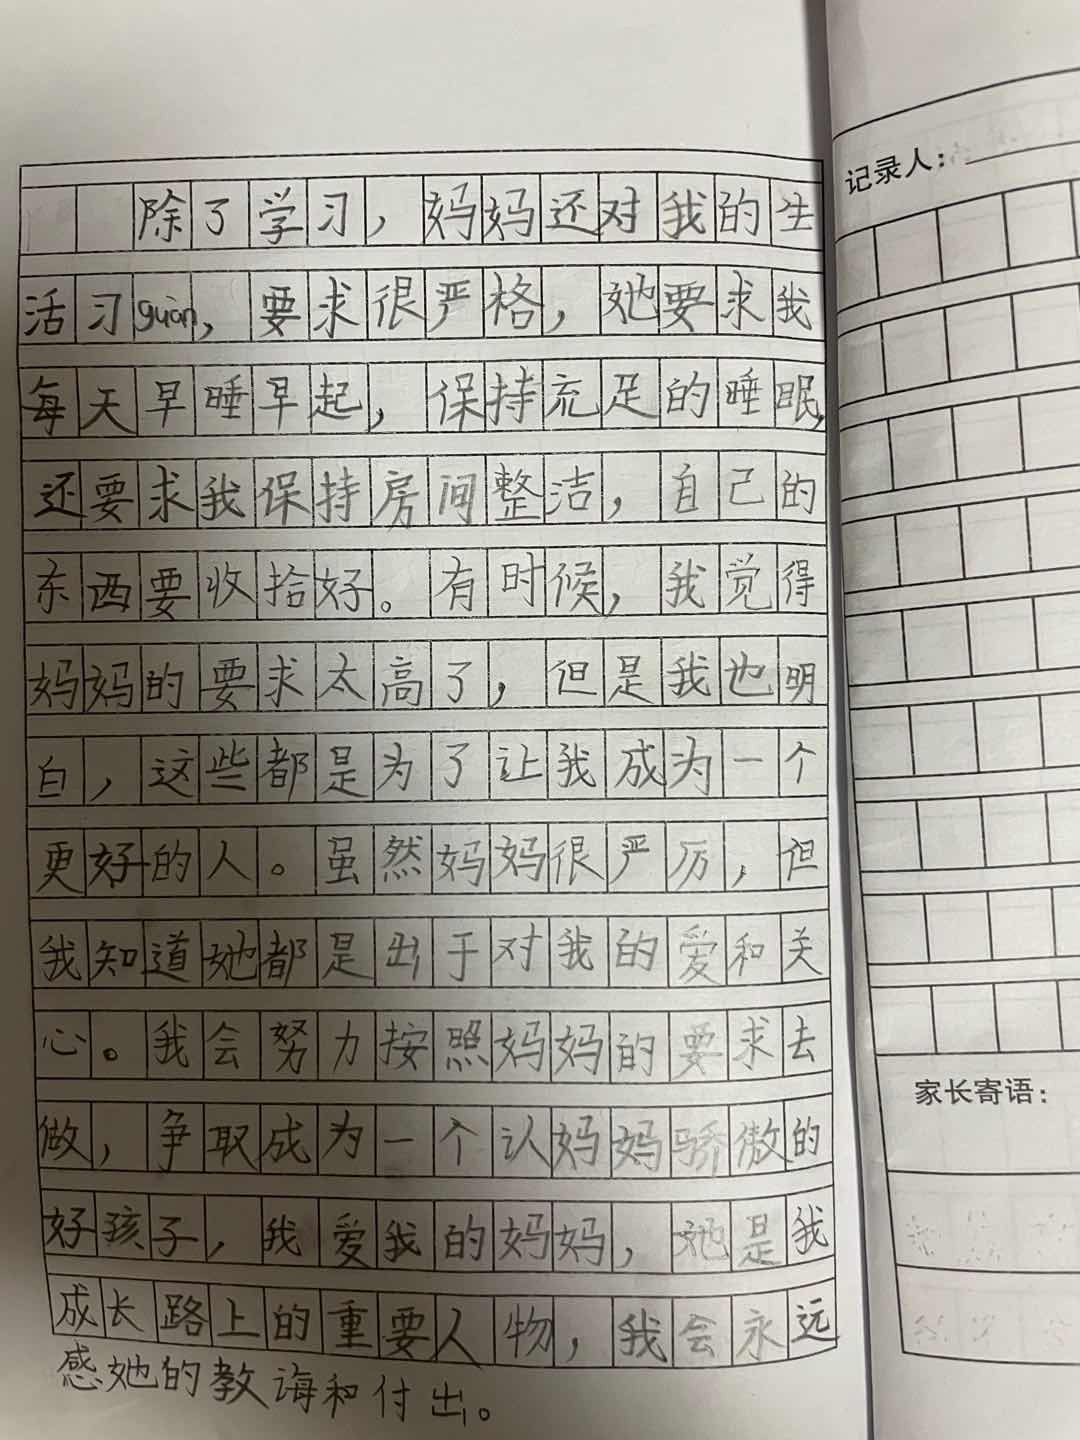 除了学习，妈妈还对我的生
活习guàn，要求很严格，她要求我
每天早睡早起，保持充足的睡眠，
还要求我保持房间整洁，自己的
东西要收拾好。有时候，我觉得
妈妈的要求太高了，但是我也明
白，这些都是为了让我成为一个
更好的人。虽然妈妈很严厉，但
我知道她都是出于对我的爱和关
心。我会努力按照妈妈的要求去
做，争取成为一个认妈妈骄傲的
好孩子，我爱我的妈妈，她是我
成长路上的重要人物，我会永远
感她的教诲和付出。
记录人：
家长寄语：